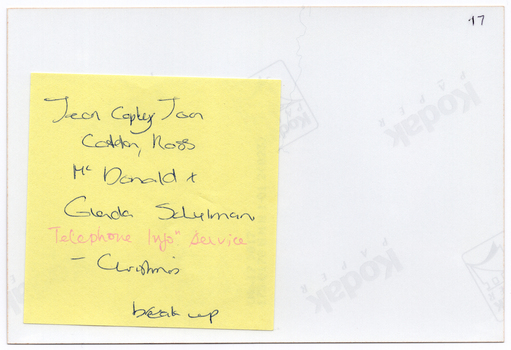 17
Jean Copley Joan
Cotton, Ross
Mc Donald +
Glenda Schulman
Telephone Info" Service
- Christmis
break up
Kodak
Kodak
Kodak